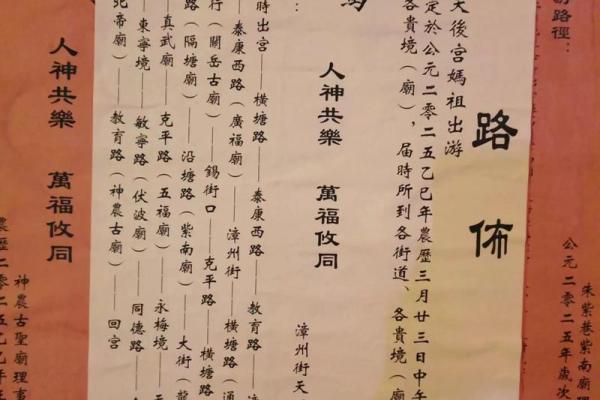 路徑：
朱紫巷紫南廟理
公元二零二五年歲次
路佈
天後宮媽祖出游
定於公元二零二五乙巳年農歷三月廿三日中午
各貴境（廟），届時所到各街道、各貴境（廟
人神共樂 萬福攸同
漳州街天
時出宮——橫塘路——泰康西路——教育路——
——泰康西路（廣福廟）——漳州街——橫塘路（通
行（關岳古廟）——錫街口——克平路——橫塘路
路（隔塘廟）——沿塘路（紫南廟）——大街（龍
——真武廟——克平路（五福廟）——永梅境——
——東寧境——敏寧路（伏波廟）——同德路——
北帝廟）——教育路（神農古廟）——回宮
人神共樂 萬福攸同
神農古聖廟理事
農歷二零二五乙巳年